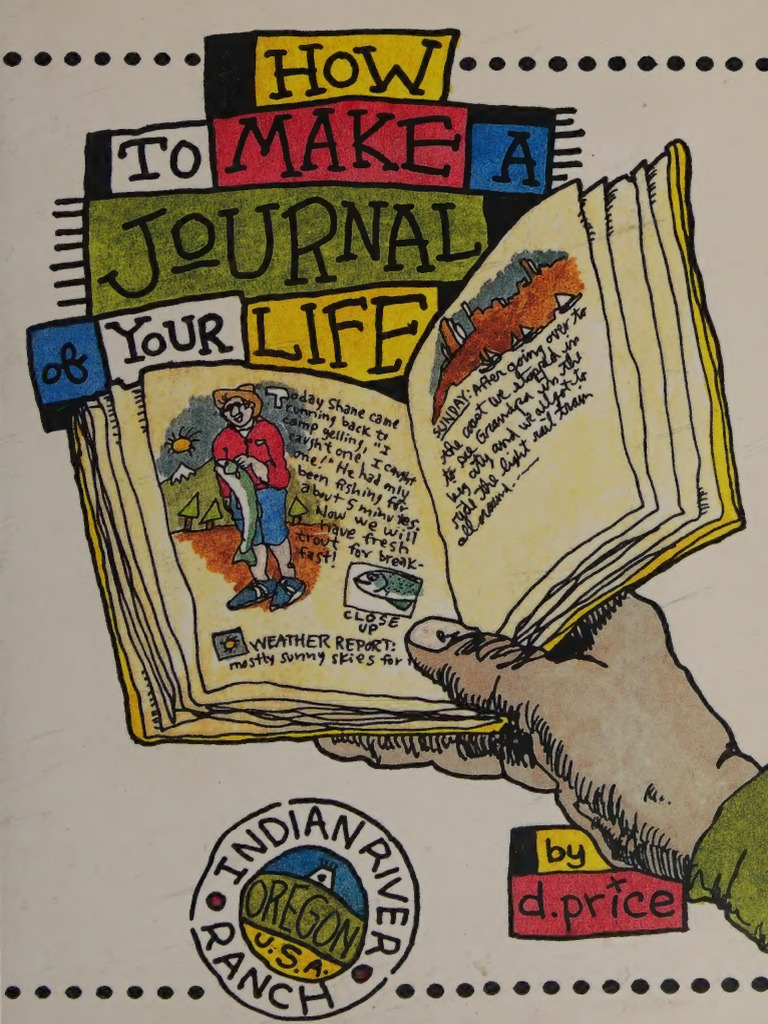 HOW
TO MAKE A
JOURNAL
of YOUR LIFE
Today Shane came
running back to
camp yelling, "I
caught one, I caught
one!" He had only
been fishing for
about 5 minutes.
Now we will
have fresh
trout for break-
fast!
CLOSE
UP
WEATHER REPORT:
mostly sunny skies for
SUNDAY: After going over to
the coast we stopped in
to see Grandma in the
big city and we all got to
ride the light rail train
all around.
INDIAN RIVER
RANCH
OREGON
U.S.A.
by
d.price